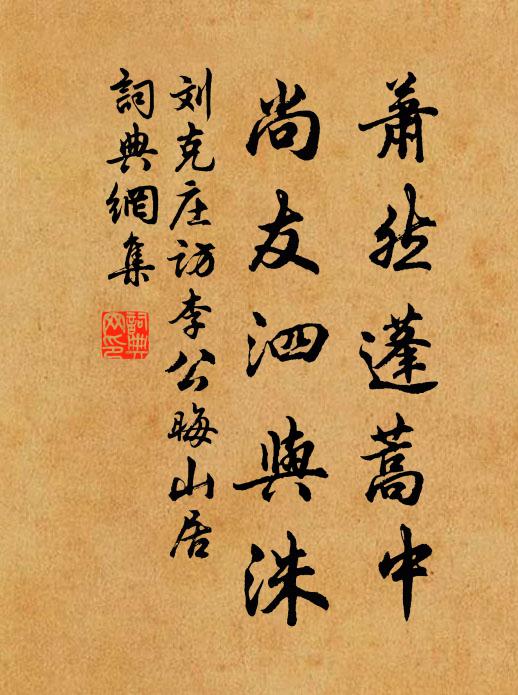 蕭然蓬蒿中
尚友泗與洙
刘克庄访李公晦山居
詞典網集
詞典网印